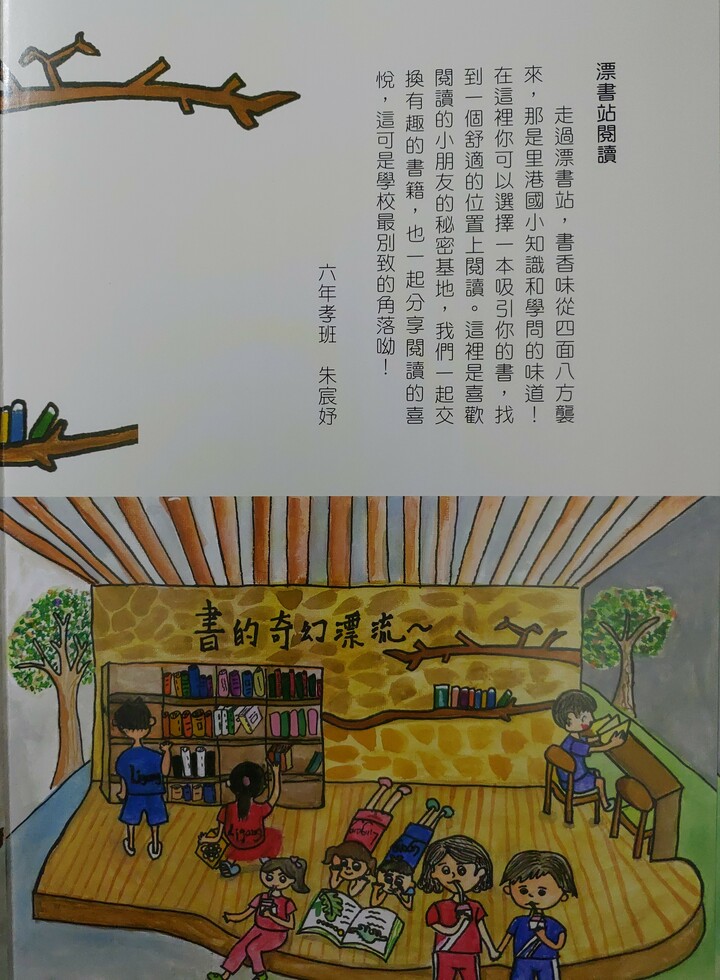 漂書站閱讀
走過漂書站，書香味從四面八方襲
來，那是里港國小知識和學問的味道！
在這裡你可以選擇一本吸引你的書，找
到一個舒適的位置上閱讀。這裡是喜歡
閱讀的小朋友的秘密基地，我們一起交
換有趣的書籍，也一起分享閱讀的喜
悅，這可是學校最別致的角落呦！
六年孝班　朱宸妤
書的奇幻漂流～
Ligang
Ligang